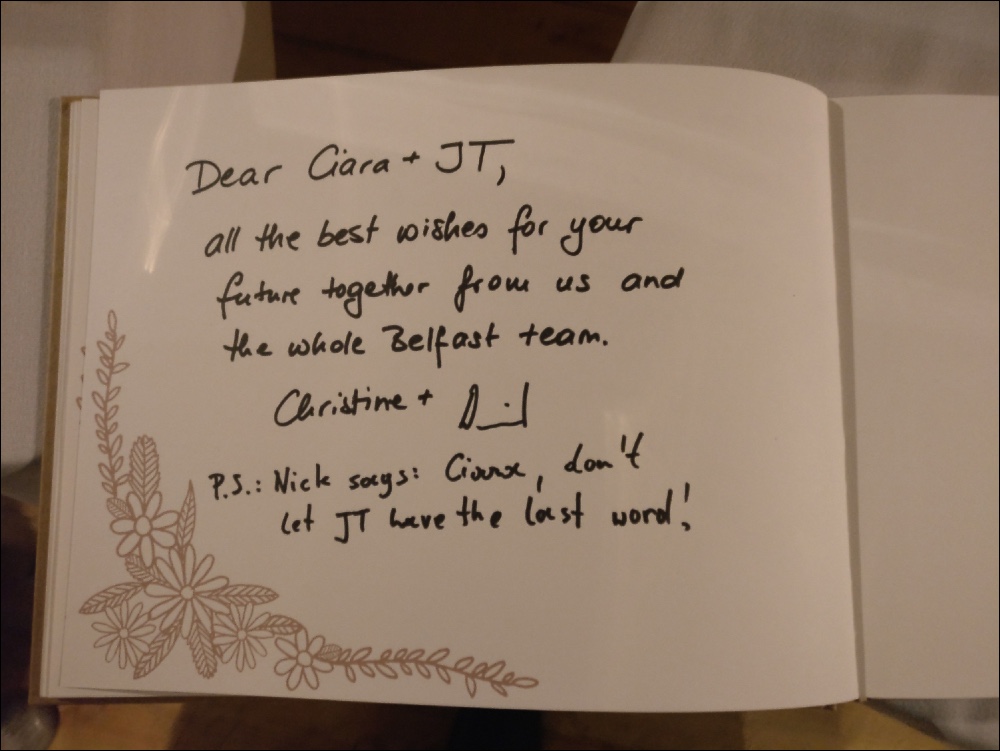 Dear Ciara + JT,
all the best wishes for your
future together from us and
the whole Belfast team.
Christine +
P.S.: Nick says: Ciara, don't
let JT have the last word!